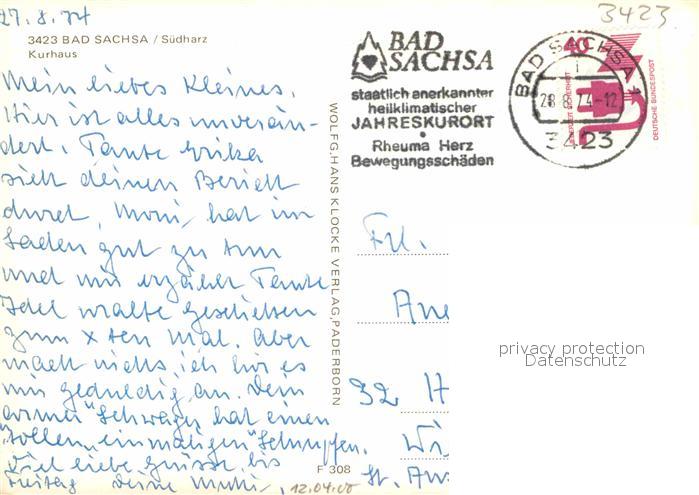 27.8.74
3423
3423 BAD SACHSA / Südharz
Kurhaus
BAD
SACHSA
staatlich anerkannter
heilklimatischer
JAHRESKURORT
Rheuma Herz
Bewegungsschäden
BAD SACHSA 1
28.8.74-12
3423
40
DEUTSCHE BUNDESPOST
Mein liebes Kleines,
Hier ist alles unverän-
dert. Tante Erika
sieht deinen Bericht
durch, Moni hat im
Laden gut zu tun
und mir erzählt Tante
Idel uralte Geschichten
zum xten Mal. Aber
macht nichts, ich hör es
mir geduldig an. Dein
armer Schwager hat einen
tollen "einmaligen" Schnupfen.
Viel liebe Grüsse, bis
Freitag Deine Mutti
WOLFG. HANS KLOCKE VERLAG, PADERBORN
F 308
12.04.00
Frl.
32 H
privacy protection
Datenschutz